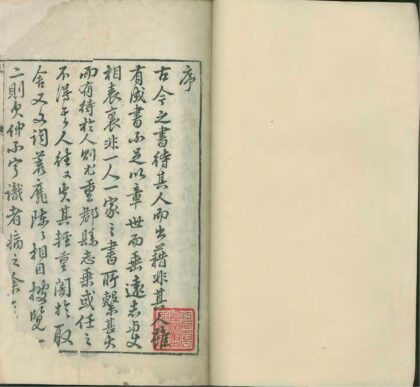 序
古今之書待其人而出藉非其人雖
有成書不足以章世而垂遠志與史
相表裏非一人一家之書所繫甚大
而有待於人則尤重郡縣志乘或任之
不得其人往又失其輕重闇於取
舍又文詞蕪龐陳陳相因披覽一
二則欠伸不寧識者病之余